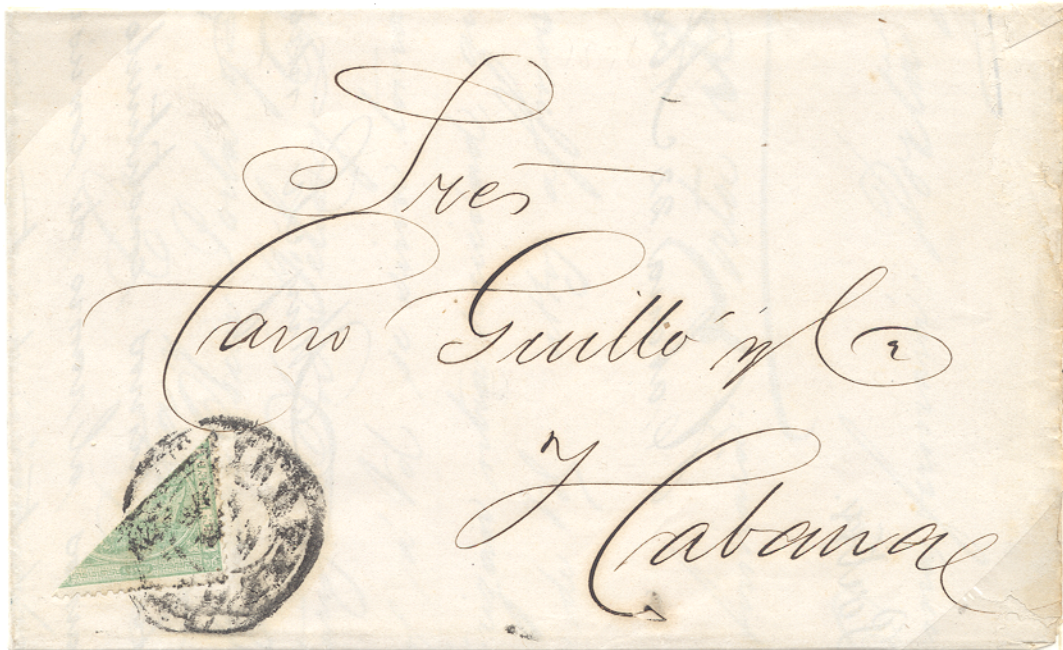 Sres
Caro Guilló y Ca
Habana